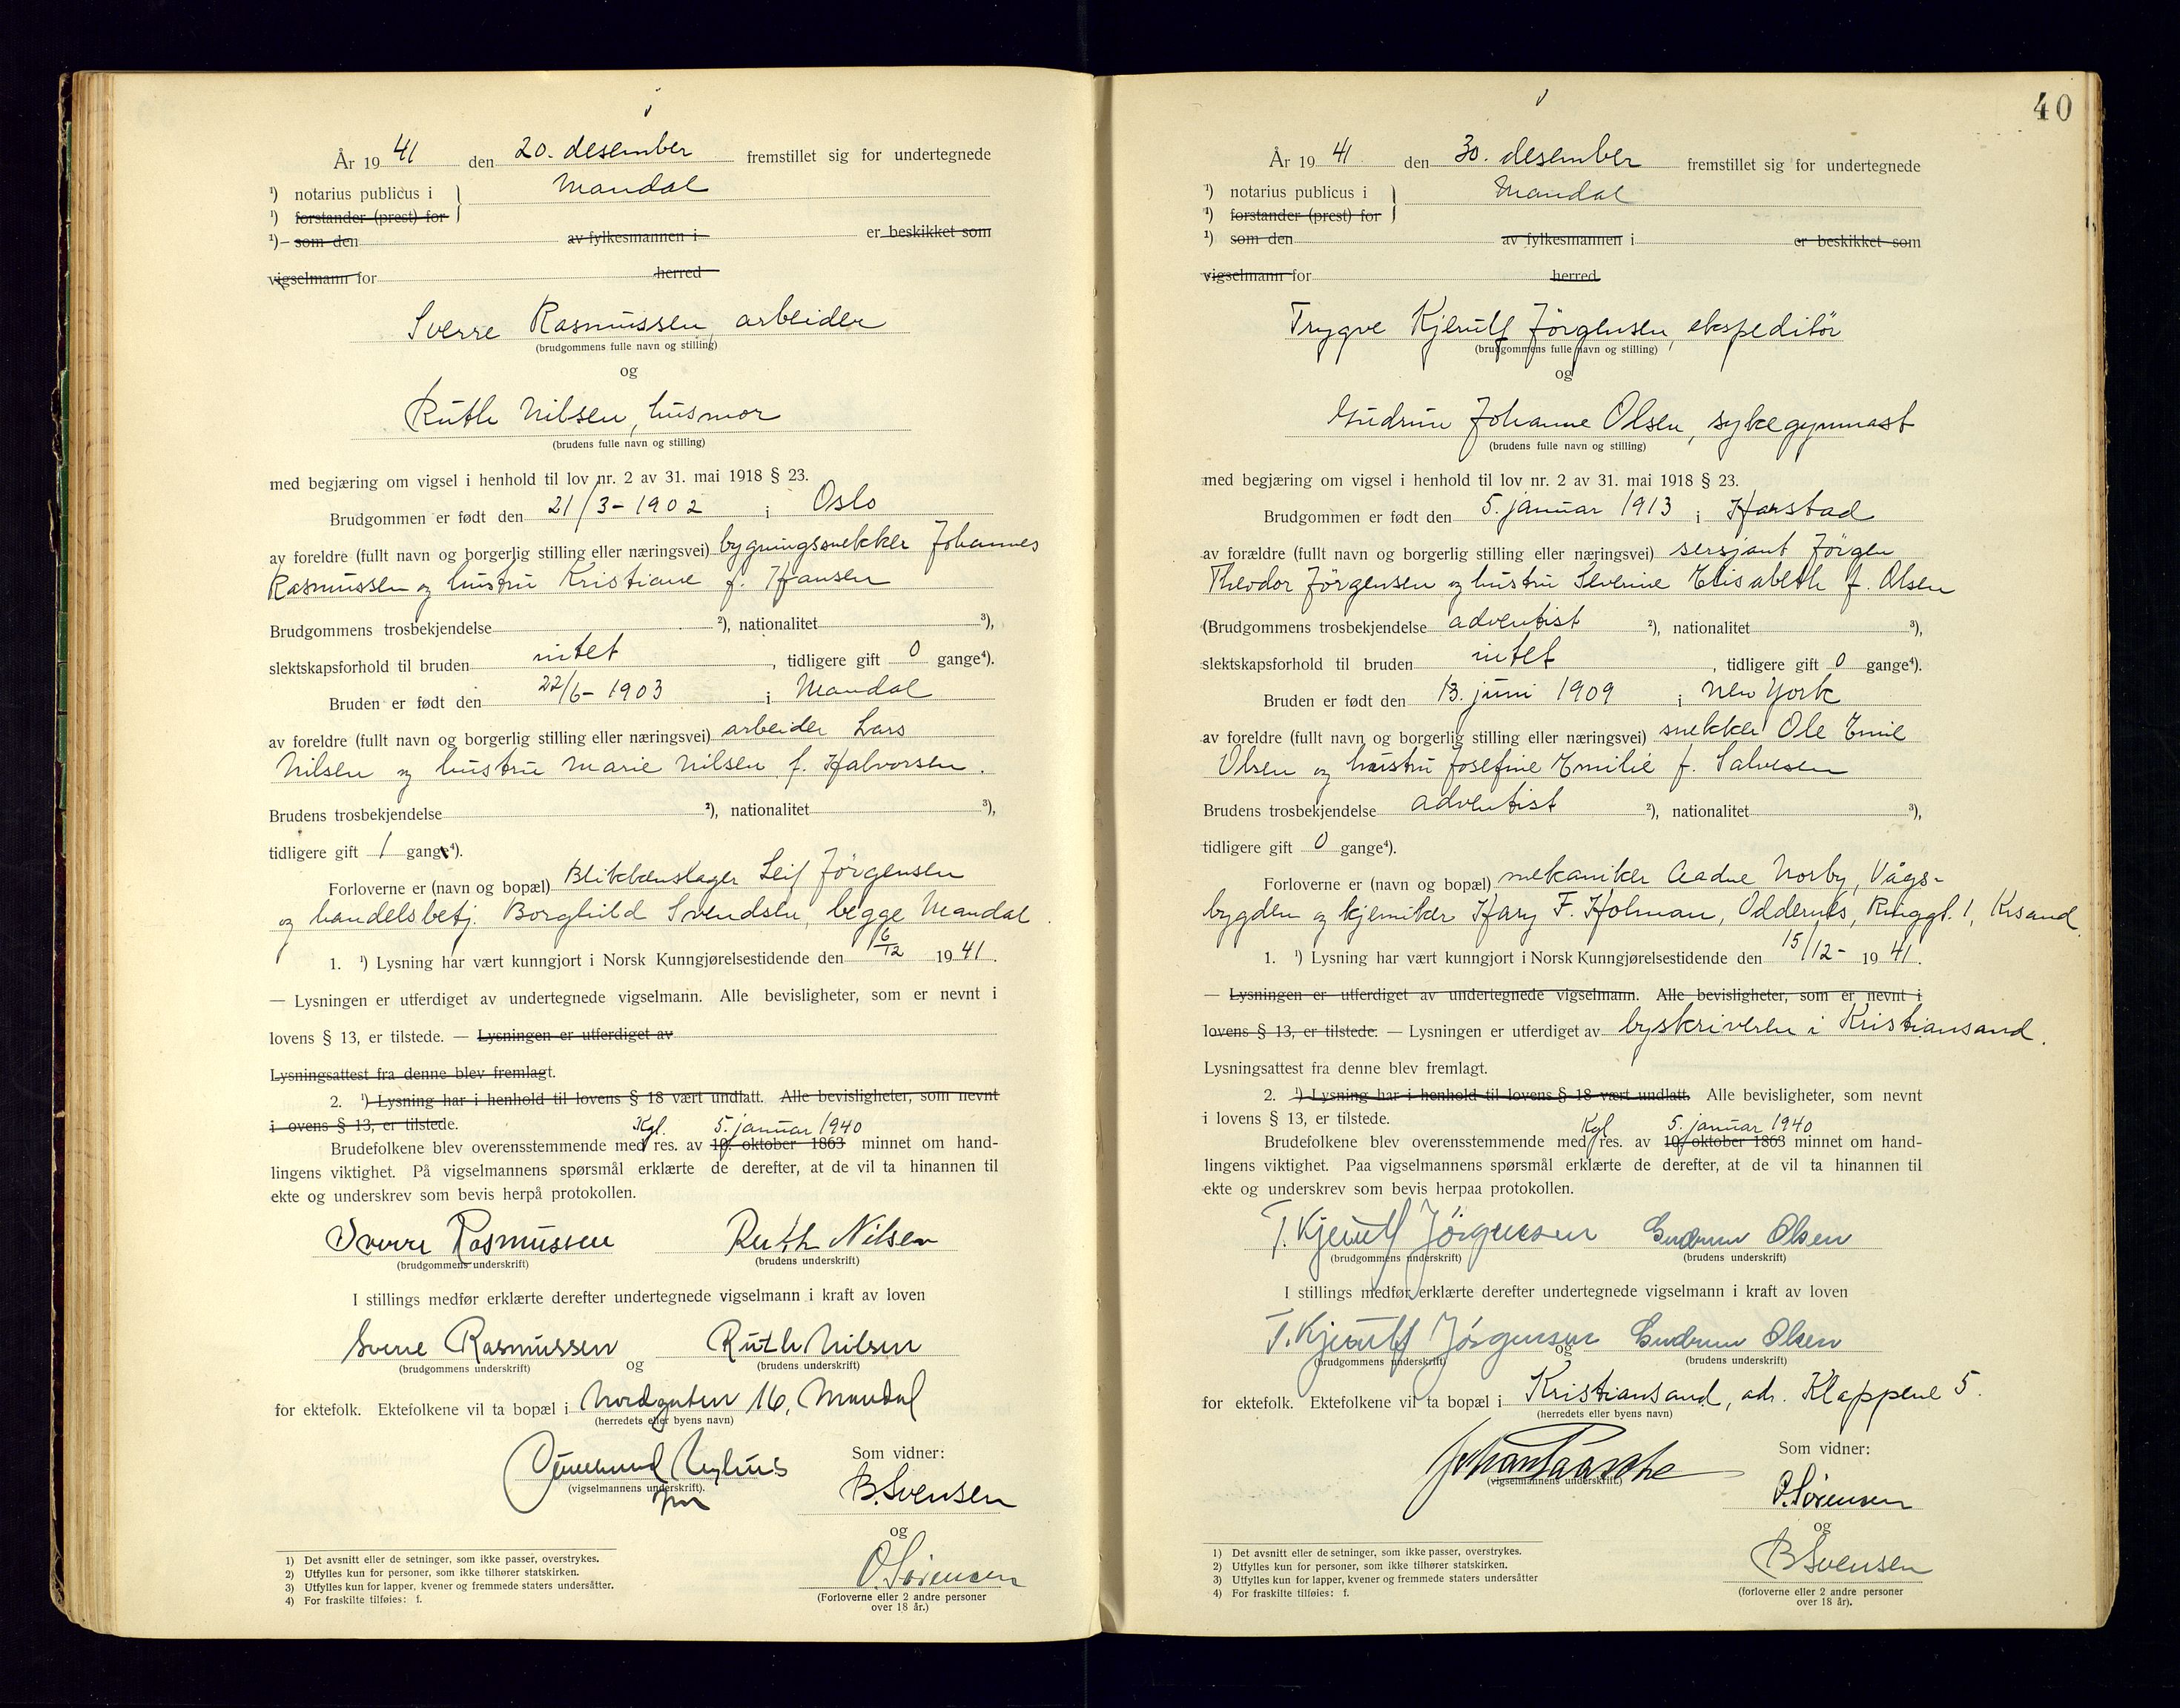 År 19 41 den 20. desember fremstillet sig for undertegnede
¹) notarius publicus i Mandal
¹) forstander (prest) for
¹) som den av fylkesmannen i er beskikket som
vigselmann for herred
Sverre Rasmussen, arbeider
(brudgommens fulle navn og stilling)
og
Ruth Nilsen, husmor
(brudens fulle navn og stilling)
med begjæring om vigsel i henhold til lov nr. 2 av 31. mai 1918 § 23.
Brudgommen er født den 21/3 - 1902 i Oslo
av foreldre (fullt navn og borgerlig stilling eller næringsvei) bygningssnekker Johannes
Rasmussen og hustru Kristiane f. Hansen
Brudgommens trosbekjendelse ²), nationalitet ³),
slektskapsforhold til bruden intet, tidligere gift 0 gange⁴).
Bruden er født den 22/6 - 1903 i Mandal
av foreldre (fullt navn og borgerlig stilling eller næringsvei) arbeider Lars
Nilsen og hustru Marie Nilsen f. Halvorsen.
Brudens trosbekjendelse ²), nationalitet ³),
tidligere gift 1 gange⁴).
Forloverne er (navn og bopæl) Blikkenslager Leif Jørgensen
og handelsbetj. Borghild Svendsen, begge Mandal.
1. ¹) Lysning har vært kunngjort i Norsk Kunngjørelsestidende den 6/12 19 41.
— Lysningen er utferdiget av undertegnede vigselmann. Alle bevisligheter, som er nevnt i
lovens § 13, er tilstede. — Lysningen er utferdiget av
Lysningsattest fra denne blev fremlagt.
2. ¹) Lysning har i henhold til lovens § 18 vært undlatt. Alle bevisligheter, som nevnt
i ovens § 13, er tilstede.
Kgl. 5. januar 1940
Brudefolkene blev overensstemmende med res. av 19. oktober 1863 minnet om hand-
lingens viktighet. På vigselmannens spørsmål erklærte de derefter, at de vil ta hinannen til
ekte og underskrev som bevis herpå protokollen.
Sverre Rasmussen Ruth Nilsen
(brudgommens underskrift) (brudens underskrift)
I stillings medfør erklærte derefter undertegnede vigselmann i kraft av loven
Sverre Rasmussen og Ruth Nilsen
(brudgommens underskrift) (brudens underskrift)
for ektefolk. Ektefolkene vil ta bopæl i Nordgaten 16, Mandal
(herredets eller byens navn)
Som vidner:
(vigselmannens underskrift).
B. Svensen
og
O. Sørensen
(Forloverne eller 2 andre personer
over 18 år.)
1) Det avsnitt eller de setninger, som ikke passer, overstrykes.
2) Utfylles kun for personer, som ikke tilhører statskirken.
3) Utfylles kun for lapper, kvener og fremmede staters undersåtter.
4) For fraskilte tilføies: f.
40
År 19 41 den 30. desember fremstillet sig for undertegnede
¹) notarius publicus i Mandal
¹) forstander (prest) for
¹) som den av fylkesmannen i er beskikket som
vigselmann for herred
Trygve Kjerulf Jørgensen, ekspeditør
(brudgommens fulle navn og stilling)
og
Gudrun Johanne Olsen, sykegymnast
(brudens fulle navn og stilling)
med begjæring om vigsel i henhold til lov nr. 2 av 31. mai 1918 § 23.
Brudgommen er født den 5. januar 1913 i Harstad
av forældre (fullt navn og borgerlig stilling eller næringsvei) sersjant Jörgen
Theodor Jørgensen og hustru Severine Elisabeth f. Olsen
(Brudgommens trosbekjendelse adventist ²), nationalitet ³),
slektskapsforhold til bruden intet, tidligere gift 0 gange⁴).
Bruden er født den 13. juni 1909 i New York
av foreldre (fullt navn og borgerlig stilling eller næringsvei) snekker Ole Emil
Olsen og hustru Josefine Emilie f. Salvesen
Brudens trosbekjendelse adventist ²), nationalitet ³),
tidligere gift 0 gange⁴).
Forloverne er (navn og bopæl) mekaniker Aadne Norby, Vågs-
bygden og kjemiker Hary F. Holman, Oddernes, Ringgt. 1, Krsand.
1. ¹) Lysning har vært kunngjort i Norsk Kunngjørelsestidende den 15/12- 19 41.
— Lysningen er utferdiget av undertegnede vigselmann. Alle bevisligheter, som er nevnt i
lovens § 13, er tilstede. — Lysningen er utferdiget av byskriveren i Kristiansand.
Lysningsattest fra denne blev fremlagt.
2. ¹) Lysning har i henhold til lovens § 18 vært undlatt. Alle bevisligheter, som nevnt
i lovens § 13, er tilstede.
Kgl 5. januar 1940
Brudefolkene blev overensstemmende med res. av 19. oktober 1863 minnet om hand-
lingens viktighet. Paa vigselmannens spørsmål erklærte de derefter, at de vil ta hinannen til
ekte og underskrev som bevis herpaa protokollen.
T. Kjerulf Jørgensen Gudrun Olsen
(brudgommens underskrift) (brudens underskrift)
I stillings medfør erklærte derefter undertegnede vigselmann i kraft av loven
T. Kjerulf Jørgensen og Gudrun Olsen
(brudgommens underskrift) (brudens underskrift)
for ektefolk. Ektefolkene vil ta bopæl i Kristiansand, adr. Klappene 5.
(herredets eller byens navn)
Som vidner:
Johan Paasche
(vigselmannens underskrift.)
O. Sørensen
og
B Svensen
(forloverne eller 2 andre personer
over 18 år).
1) Det avsnitt eller de setninger, som ikke passer, overstrykes.
2) Utfylles kun for personer, som ikke tilhører statskirken.
3) Utfylles kun for lapper, kvener og fremmede staters undersåtter
4) For fraskilte tilføies: f.